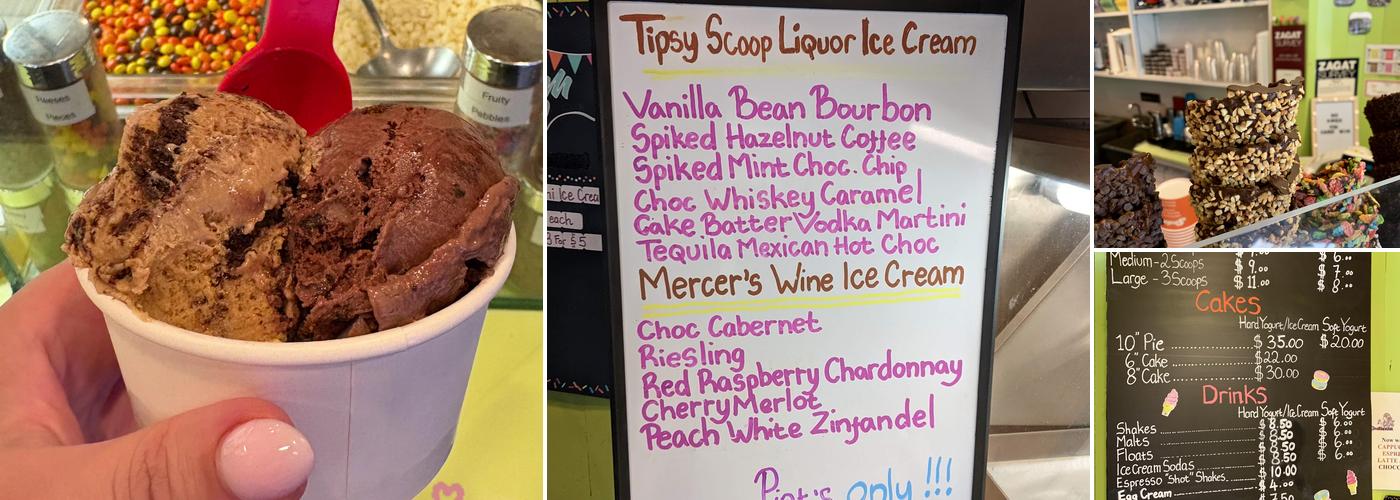 Reeses
Pieces
Fruity
Pebbles
Tipsy Scoop Liquor Ice Cream
Vanilla Bean Bourbon
Spiked Hazelnut Coffee
Spiked Mint Choc. Chip
Choc Whiskey Caramel
Cake Batter Vodka Martini
Tequila Mexican Hot Choc
Mercer's Wine Ice Cream
Choc Cabernet
Riesling
Red Raspberry Chardonnay
Cherry Merlot
Peach White Zinfandel
Pint's only!!!
ni Ice Crea
each
3 For $5
ZAGAT
SURVEY
ZAGAT
SURVEY
Medium - 2 Scoops
Large - 3 Scoops $11.00 8.00
Cakes
Hard Yogurt/Ice Cream Soft Yogurt
10" Pie $35.00 $20.00
6" Cake $22.00
8" Cake $30.00
Drinks
Hard Yogurt/Ice Cream Soft Yogurt
Shakes $8.50 $6.00
Malts $8.50 $6.00
Floats $8.50 $6.00
Ice Cream Sodas $8.50 $6.00
Espresso "Shot" Shakes $10.00
Egg Cream $4.00
7.50